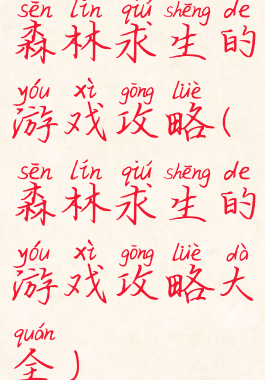 sēn lín qiú shēng de
森林求生的
yóu xì gōng lüè
游戏攻略(
sēn lín qiú shēng de
森林求生的
yóu xì gōng lüè dà
游戏攻略大
quán
全)